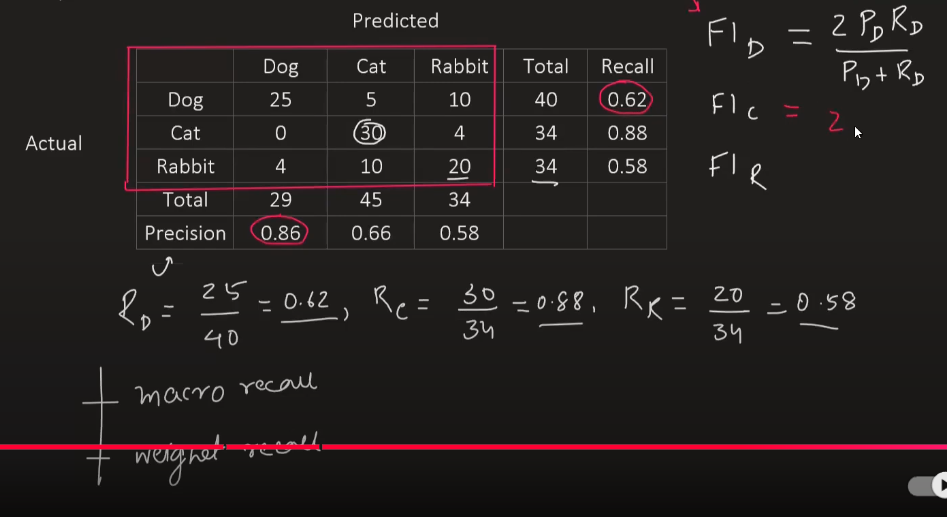 Predicted
Dog Cat Rabbit Total Recall
Dog 25 5 10 40 0.62
Cat 0 30 4 34 0.88
Actual
Rabbit 4 10 20 34 0.58
Total 29 45 34
Precision 0.86 0.66 0.58
F1_D = 2 P_D R_D / P_D + R_D
F1_C = 2
F1_R
R_D = 25/40 = 0.62, R_C = 30/34 = 0.88, R_R = 20/34 = 0.58
macro recall
weighet recall